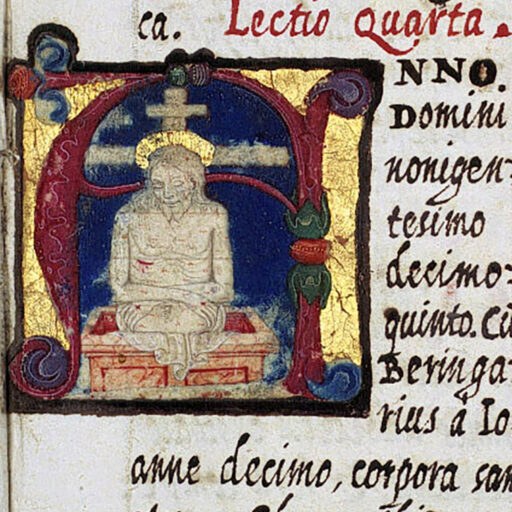 ca. Lectio Quarta.
NNO.
Domini
nonigen-
tesimo
decimo-
quinto. Cū
Beringa
rius à Io
anne decimo, corpora san